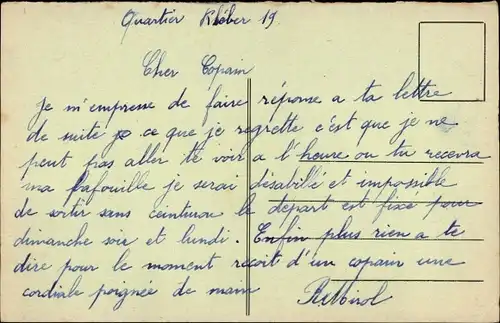 Quartier Kléber 19
Cher Copain
Je m'empresse de faire réponse a ta lettre
de suite ce que je regrette c'est que je ne
peut pas aller te voir a l'heure ou tu recevra
ma bafouille je serai désabillé et impossible
de sortir sans ceinturon le départ est fixé pour
dimanche soir et lundi. Enfin plus rien a te
dire pour le moment recoit d'un copain une
cordiale poignée de main